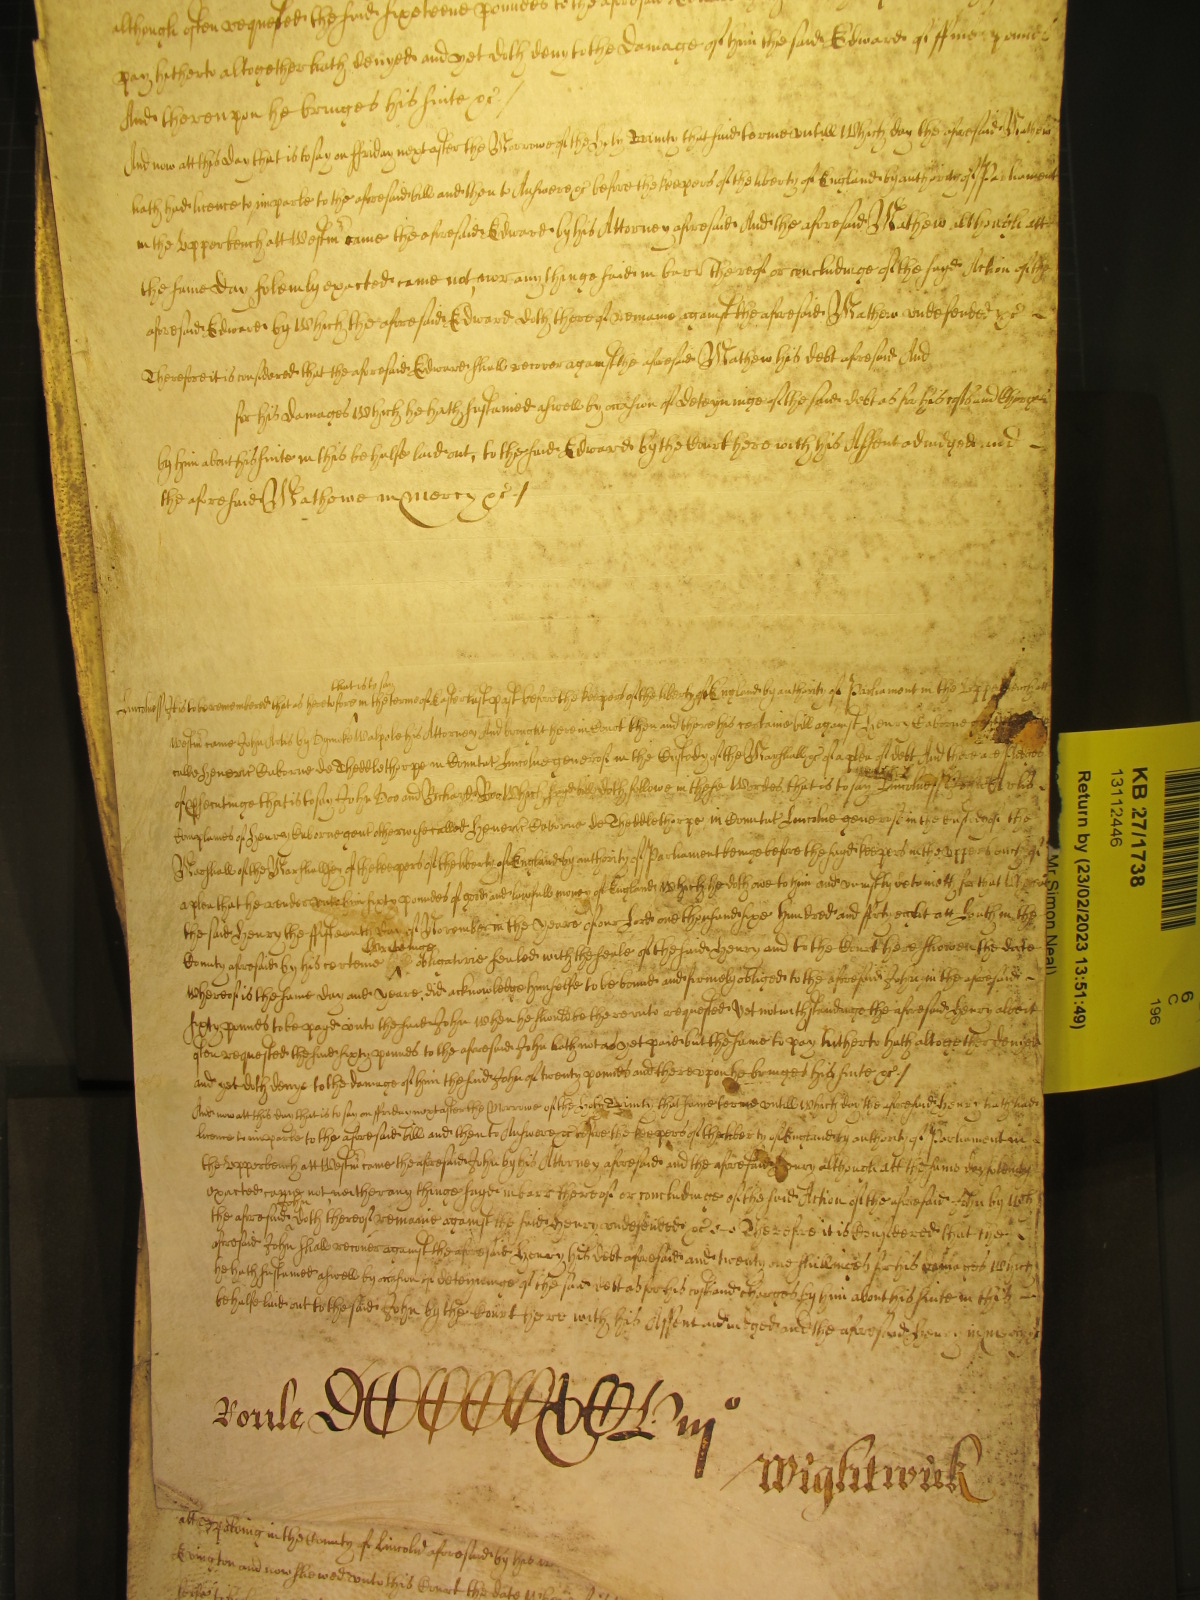 although often requested the said sixeteene pounds to the aforesaid
pay hitherto altogether hath denyed and yet doth deny to the damage of him the said Edward of ffive pounds
And thereupon he bringes his suite &c /
And now att this day that is to say on ffriday next after the Morrowe of the holy Trinity that said terme untill which day the aforesaid Mathew
hath had licence to imparle to the aforesaid bill and then to Answere &c before the keepers of the liberty of England by authority of Parliament
in the upperbench att Westmr came the aforesaid Edward by his Attorney aforesaid And the aforesaid Mathew although att
the same day solemly exacted came not nor any thinge said in barr thereof or concludinge of the sayd Action of the
aforesaid Edward by which the aforesaid Edward doth thereof remaine against the aforesaid Mathew undefended &c
Therefore it is considered that the aforesaid Edward shall recover against the aforesaid Mathew his debt aforesaid And
for his damages which he hath sustained aswell by occasion of deteyninge of the said debt as for his costs and Charges
by him about his suite in this behalfe laid out, to the said Edward by the Court here with his Assent adiudged and
the aforesaid Mathewe in Mercy &c /
that is to say
Lincolne ss It is to be remembred that as heretofore in the terme of Easter last past before the keepers of the liberty of England by authority of Parliament in the Upperbench att
Westmr came John Acris by Dymock Walpole his Attorney And brought here in Court then and there his certaine bill against Henry Euborne
called Henric Euborne de Theddlethorpe in Comitat Lincolne generos in the Custody of the Marshall &c of a plea of debt And there are pledges
of prosecutinge that is to say John Doo and Richard Roo Which sayd bill doth followe in these Wordes that is to say Lincolne ss John Acris
complaines of Henry Euborne gent otherwise called Henric Euborne de Theddlethorpe in Comitat Lincolne generos in the custody of the
Marshall of the Marshallsey of the keepers of the liberty of England by authority of Parliament beinge before the sayd keepers in the upper bench of
a plea that he render unto him sixty pounds of good and lawfull money of England which he doth owe to him and uniustly detaineth for that Whereas
the said Henry the ffifteenth day of November in the yeare of our Lord one thousand sixe hundred and forty eight att Louth in the
County aforesaid by his certaine writinge obligatorie sealed with the seale of the said Henry and to the Court here shewen the date
whereof is the same day and yeare did acknowledge himselfe to be bound and firmely obliged to the aforesaid John in the aforesaid
sixty pounds to be payd unto the said John when he should be thereunto requested Yet notwithstandinge the aforesaid Henry albeit
often requested the said sixty pounds to the aforesaid John hath not as yet paid but the same to pay hitherto hath altogether denied
and yet doth denye to the damage of him the said John of twenty pounds and thereupon he bringes his suite &c /
And now att this day that is to say on ffriday next after the Morrowe of the holy Trinity that same terme untill which day the aforesaid Henry hath had
licence to imparle to the aforesaid bill and then to Answere &c before the keepers of the liberty of England by authority of Parliament in
the upperbench att Westmr came the aforesaid John by his Attorney aforesaid and the aforesaid Henry although att the same day solemly
exacted came not neither any thinge sayd in barr thereof or concludinge of the said Action of the aforesaid John by wch
the aforesaid John doth thereof remaine against the said Henry undefended &c Therefore it is considered that the
aforesaid John shall recover against the aforesaid Henry his debt aforesaid and twenty one shillings for his damages which
he hath sustained aswell by occasion of deteininge of the said debt as for his costs and charges by him about his suite in this
behalfe laid out to the said John by the Court here with his Assent adiudged and the aforesaid Henry in mercy
Roule
Wightwick
in the County of Lincolne aforesaid by his
and now shewed unto this Court the date
KB 27/1738
13112446
Return by (23/02/2023 13:51:49)
Mr Simon Neal
6
C
196